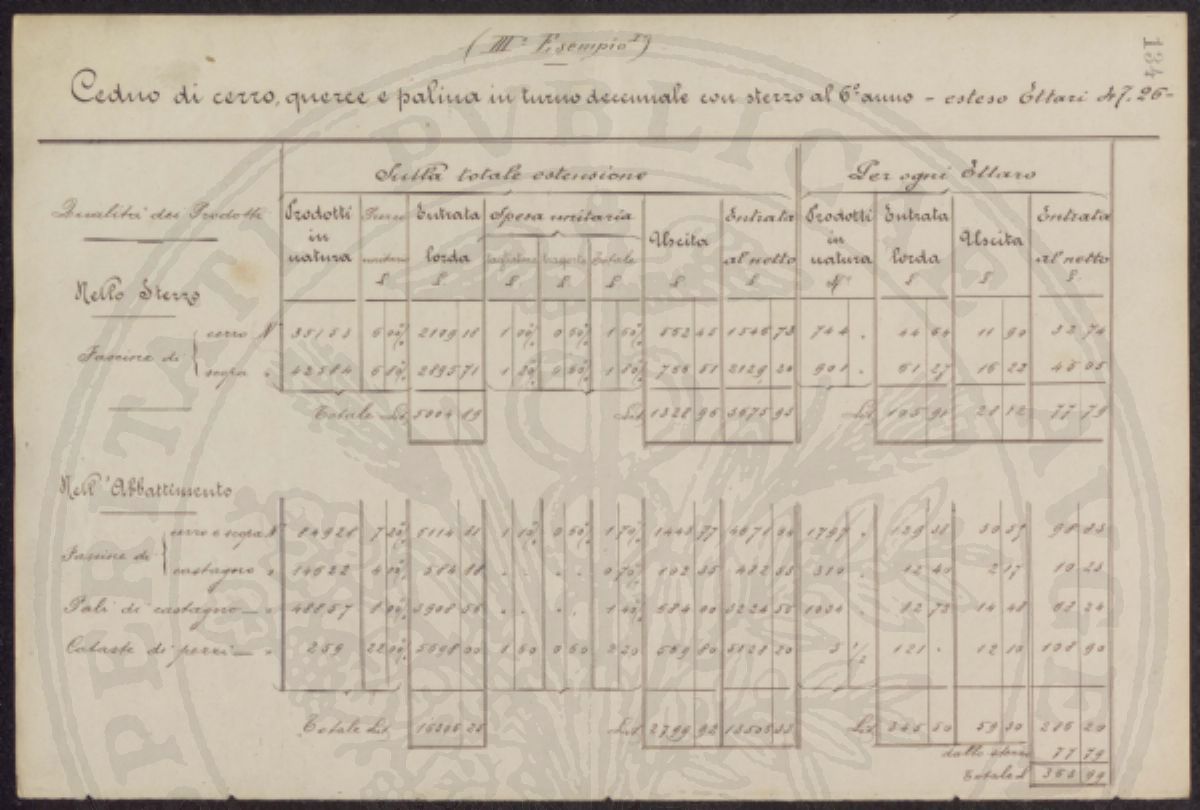 (IIIº Esempio)
134
Ceduo di cerro, querce e palina in turno decennale con sterzo al 6º anno - esteso Ettari 47.26-
Sulla totale estensione Per ogni Ettaro
Qualità dei Prodotti Prodotti in natura Prezzo unitario £ Entrata lorda £ Spesa unitaria tagliatura £ trasporto £ Totale £ Uscita £ Entrata al netto £ Prodotti in natura Nº Entrata lorda £ Uscita £ Entrata al netto £
Nello Sterzo
Fascine di
cerro Nº 35153 6 00% 2109 18 1 00% 0 60% 1 60% 562 45 1546 73 744 . 44 64 11 90 32 74
scopa " 42584 6 80% 2895 71 1 20% 0 60% 1 80% 766 51 2129 20 901 . 61 27 16 22 45 05
Totale Lit. 5004 89 Lit 1328 96 3675 93 Lit 105 91 28 12 77 79
Nell'Abbattimento
Fascine di
cerro e scopa Nº 84928 7 20% 6114 81 1 10% 0 60% 1 70% 1443 77 4671 04 1797 . 129 38 30 55 98 83
castagno " 14622 4 00% 584 88 . . . . 0 70% 102 35 482 53 310 . 12 40 2 17 10 23
Pali di castagno — " 48857 8 00% 3908 56 . . . . 1 40% 684 00 3224 56 1034 . 82 72 14 48 68 24
Cataste di pezzi — " 259 22 00% 5698 00 1 60 0 60 2 20 569 80 5128 20 5 1/2 121 . 12 10 108 90
Totale Lit. 16306 25 Lit 2799 92 13506 33 Lit 345 50 59 30 286 20
dallo sterzo 77 79
Totale £ 363 99